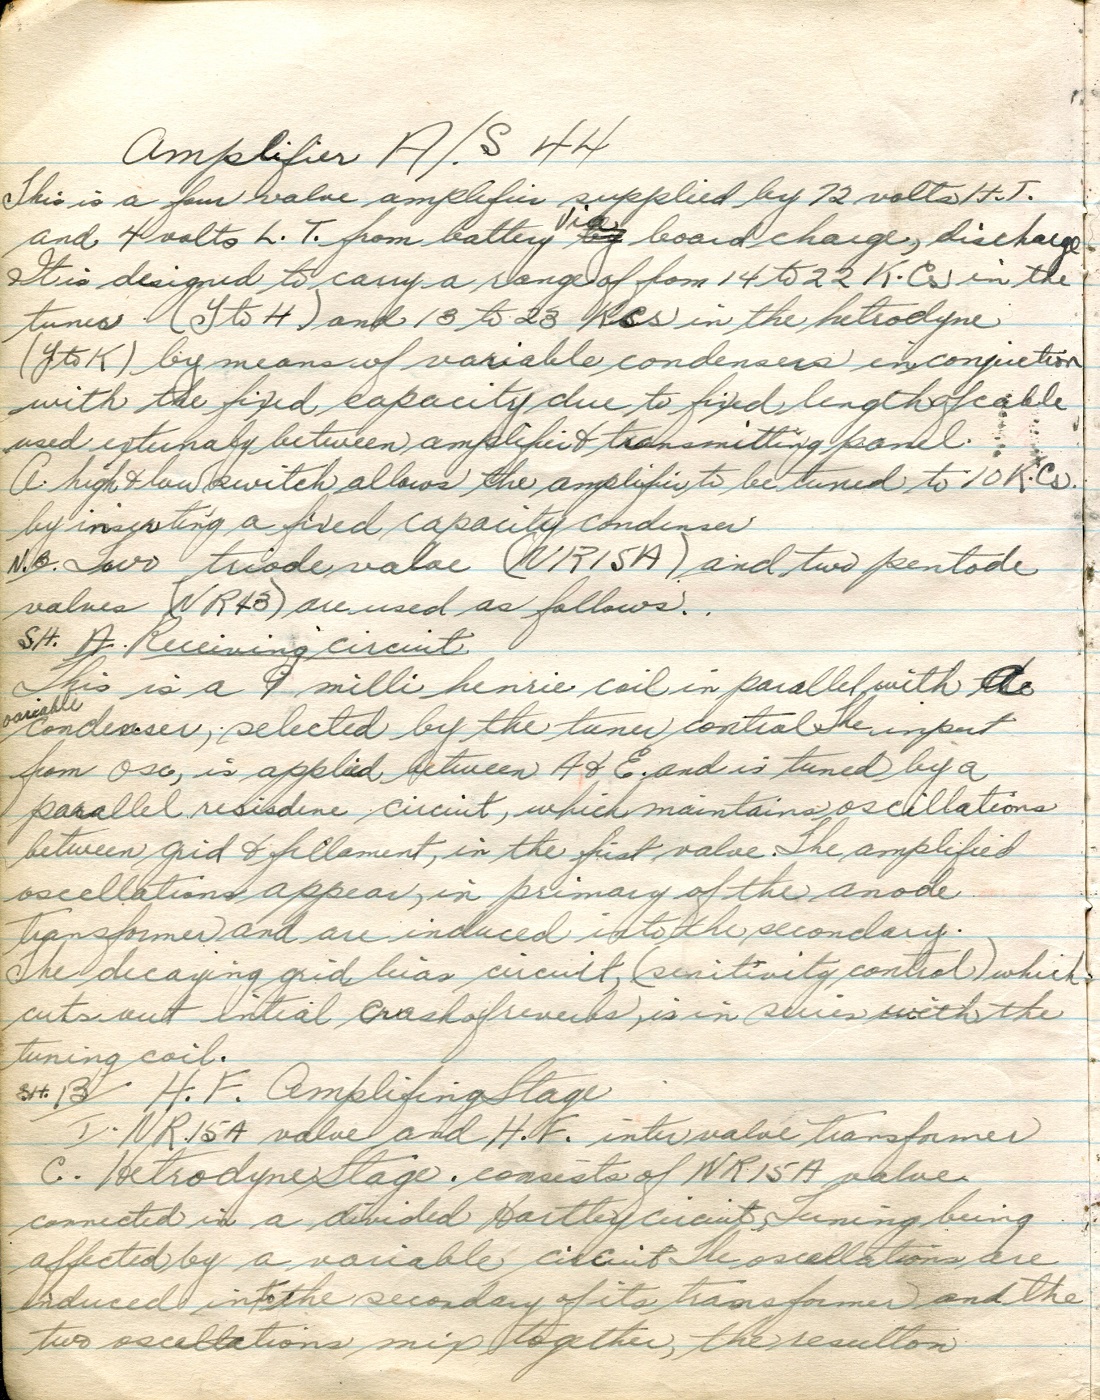 Amplifier A/S 44
This is a four valve amplifier supplied by 72 volts H.T.
and 4 volts L.T. from battery via by board charge, discharge
It is designed to carry a range of from 14 to 22 K.Cs in the
tuner (Y to H) and 13 to 23 Kcs in the hetrodyne
(Y to K) by means of variable condensers in conjuction
with the fixed capacity due to fixed length of cable
used externaly between amplifier & transmitting panel.
A high & low switch allows the amplifier to be tuned to 10 K.Cs.
by inserting a fixed capacity condenser
N.B. Two triode valve (NR15A) and two pentode
valves (NR43) are used as follows..
SH. A. Receiving circuit
This is a 9 milli henrie coil in parallel with the
variable
condenser, selected by the tuner control The input
from osc, is applied between A & E. and is tuned by a
parallel circuit, which maintains oscillations
between grid & fillament, in the first valve. The amplified
oscellations appear, in primary of the anode
transformer and are induced into the secondary.
The decaying grid bias circuit, (senitivity control) which
cuts out intial crash of reverbs, is in series with the
tuning coil.
SH. B H.F. Amplifing Stage
I. NR.15A valve and H.F. intervalve transformer
C. Hetrodyne Stage. consists of NR15A valve
connected in a divided Hartley circuit, Tuning being
affected by a variable circuit The oscellations are
induced into the secondary of its transformer and the
two oscellations mix together, the resulton